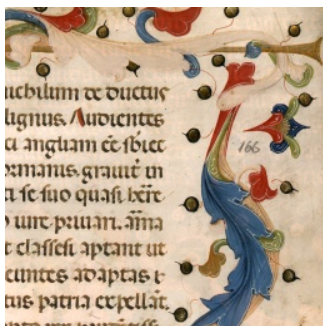 uebilium de ductus
lignus. Audientes
ci angliam eẽ sbiec
ormanis. grauit̃ in
ti se suo quasi hẽre
o iure priuari. ãma
t classes aptant ut
euntes adaptas t
tus patria expellãt.
166